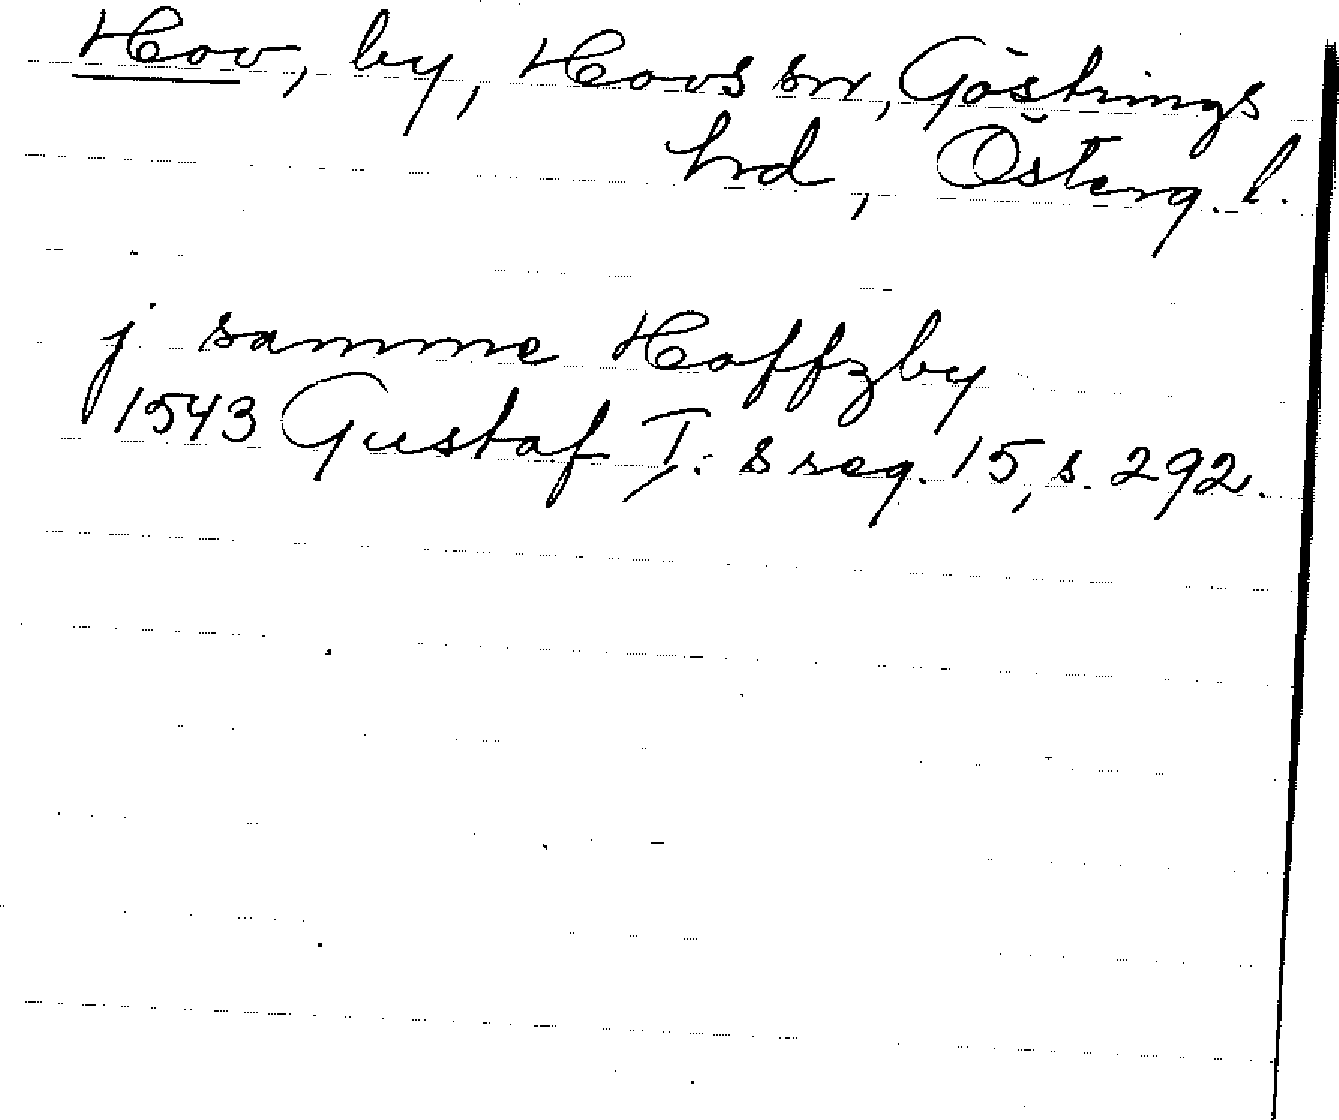 Hov, by, Hovs sn, Göstrings
hd, Österg. l.
j samme Hoffzby
1543 Gustaf I:s reg. 15, s. 292.